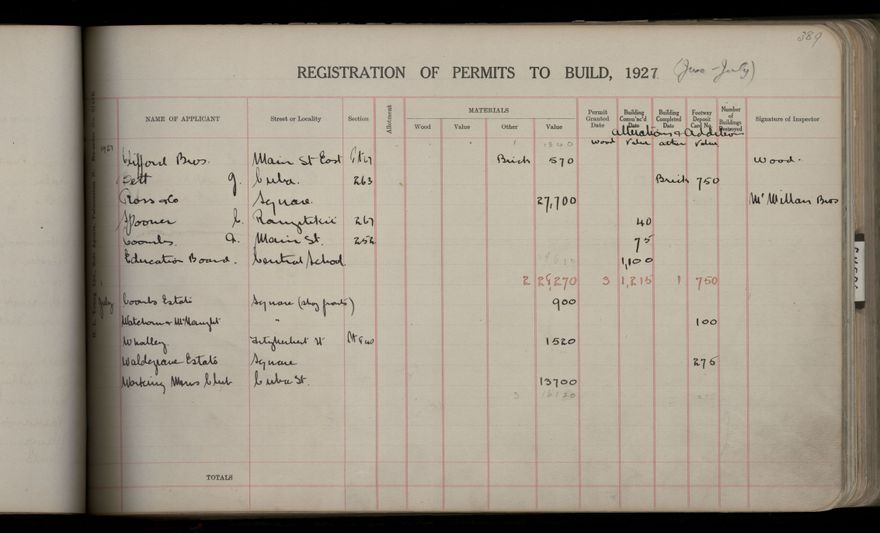 389
REGISTRATION OF PERMITS TO BUILD, 1927 (June-July)
NAME OF APPLICANT Street or Locality Section Allotment MATERIALS Permit Granted Date Building Comm'nc'd Date Building Completed Date Footway Deposit Card No. Number of Buildings Destroyed Signature of Inspector
Wood Value Other Value
Alterations & Additions
1927 wood value other value
Clifford Bros. Main St East Brick 570 Wood.
G. Cuba. 263 Brick 750
Ross & Co Square. 27,700 McMillan Bros
Spooner C. Rangitikei 267 40
Coombs. A. Main St. 252 75
Education Board. Central School 1,100
2 28,270 3 1,215 1 750
July Coombs Estate Square (shop fronts) 900
Watchorn & McNaught " 100
Whalley Fitzherbert St 1520
Waldegrave Estate Square 275
Working Mens Club Cuba St. 13700
3 16120
TOTALS